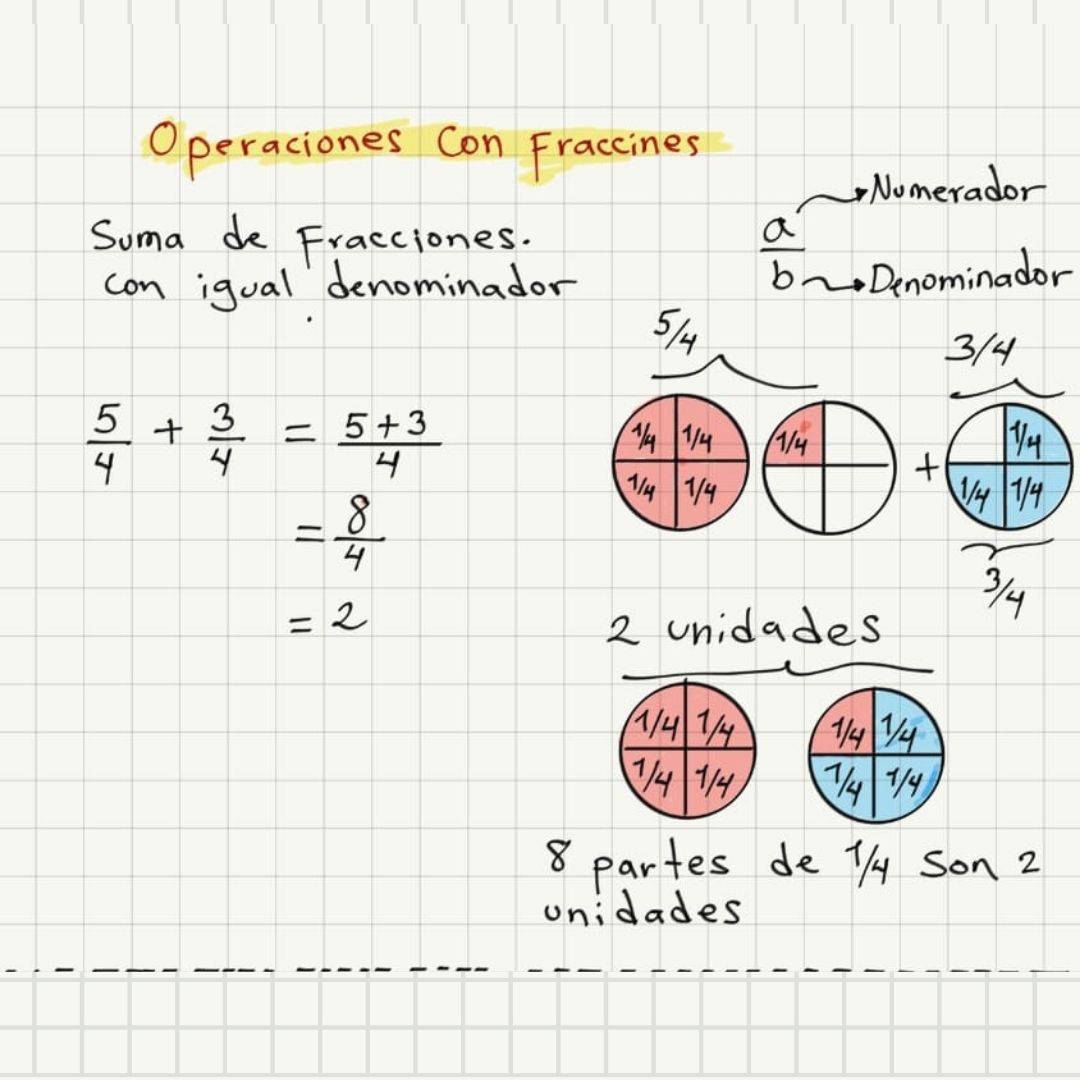 Operaciones Con Fraccines
Suma de Fracciones.
con igual denominador
a → Numerador
b → Denominador
5/4 + 3/4 = 5+3/4
= 8/4
= 2
5/4
3/4
1/4 1/4
1/4 1/4
1/4
+
1/4
1/4 1/4
3/4
2 unidades
1/4 1/4
1/4 1/4
1/4 1/4
1/4 1/4
8 partes de 1/4 son 2
unidades